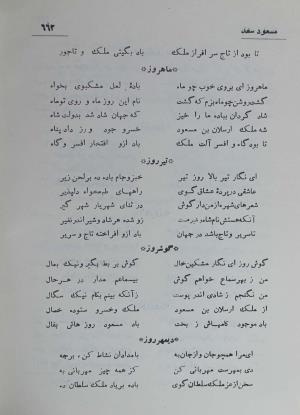 مسعود سعد ۶۶۲
تا بود از تاج سر افراز ملک باد بگیتی ملک و تاجور
*ماهروز*
ماهروز ای بروی خوب چو ماه بادهٔ لعل مشکبوی بخواه
گشت روشن چو ماه بزم که گشت نام این روز ماه و روی تو ماه
شاد گردان بباده ما را خیز که جهان شاد شد بدولت شاه
شه ملک ارسلان بن مسعود خسرو جود و رزد داد پناه
تا بود گاه و افسر آلت ملک باد ازو افتخار افسر و گاه
*تیر روز*
ای نگار تیر بالا روز تیر خیز و جام باده ده بر لحن زیر
عاشقی در پردهٔ عشاق گوی راههای طبع خواه دلپذیر
شعرهای شهره ما دارم ز بر در ثنای شهریار شهر گیر
آنکه هستش نام شاهد زو شده هر شاد و شیر اندر نفیر
تا سریر و تاج باشد در جهان باد ازو افراخته تاج و سریر
*گوشروز*
گوش روز ای نگار مشکین خال گوش بر بط بگیر و نیک بمال
من ز بهر سماع خواهم گوش بی سماعم مدار در هر حال
من نگنجم ز شادی اندر پوست ز آنکه بینم بکام نیک سگال
از ملک ارسلان بن مسعود ملک و خسرو ستوده خصال
باد موجود کامهاش ز بخت باد مسعود روز هاش بفال
*دیبمهر روز*
ای مرا همچو جان و از جان به بامدادان نشاط کن برجه
دی بمهرست مهربانی کن کز همه چیز مهربانی به
سخن از عز ملک سلطان گوی باده بر یاد ملک سلطان ده